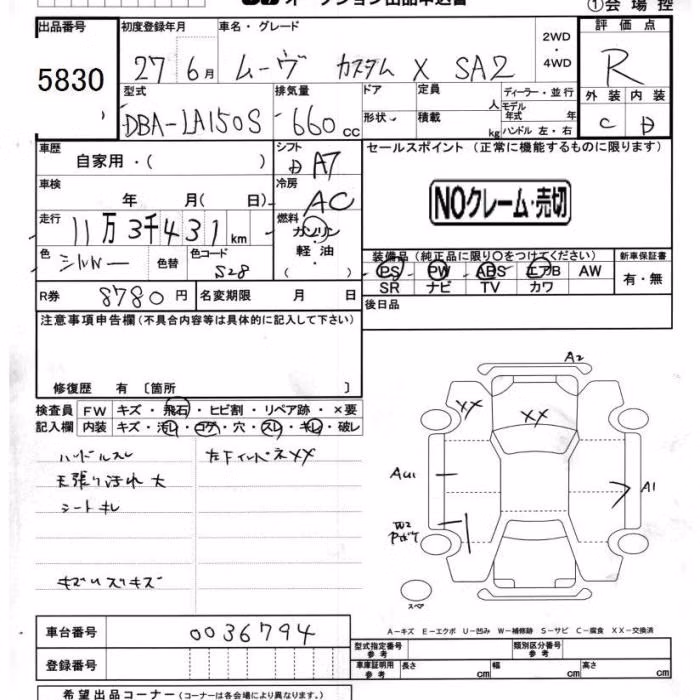 オークション出品申込書
①会場控
出品番号
5830
初度登録年月
27 6月
車名・グレード
ムーヴ カスタム X SA2
2WD
・
4WD
評価点
R
外装 内装
C D
型式
DBA-LA150S
排気量
660 cc
ドア
形状
定員 人
積載 kg
ディーラー・並行
モデル
年式 年
ハンドル 左・右
車歴
自家用・( )
シフト
AT
セールスポイント(正常に機能するものに限ります)
NOクレーム・売切
車検
年 月( 日)
冷房
AC
走行
11万3千431 km
燃料
ガソリン
軽・油
( )
色
シルバー
色替
色コード
S28
装備品(純正品に限り〇をつけてください)
新車保証書
PS PW ABS エアB AW
SR ナビ TV カワ
有・無
R券 8780円 名変期限 月 日
後日品
注意事項申告欄(不具合内容等は具体的に記入して下さい)
修復歴 有〔箇所
検査員
記入欄
FW キズ・飛石・ヒビ割・リペア跡・×要
内装 キズ・汚れ・コゲ・穴・スレ・キレ・破レ
ハンドルスレ
天張り汚れ大
シートキレ
キズ
左FインパネXX
A2
XX
XX
AU1
A1
W2
スペア
A−キズ E−エクボ U−凹み W−補修跡 S−サビ C−腐食 XX−交換済
車台番号 0036794
登録番号
型式指定番号
参考
類別区分番号
参考
車庫証明用
参考
長さ cm 幅 cm 高さ cm
希望出品コーナー(コーナーは各会場により異なります。)